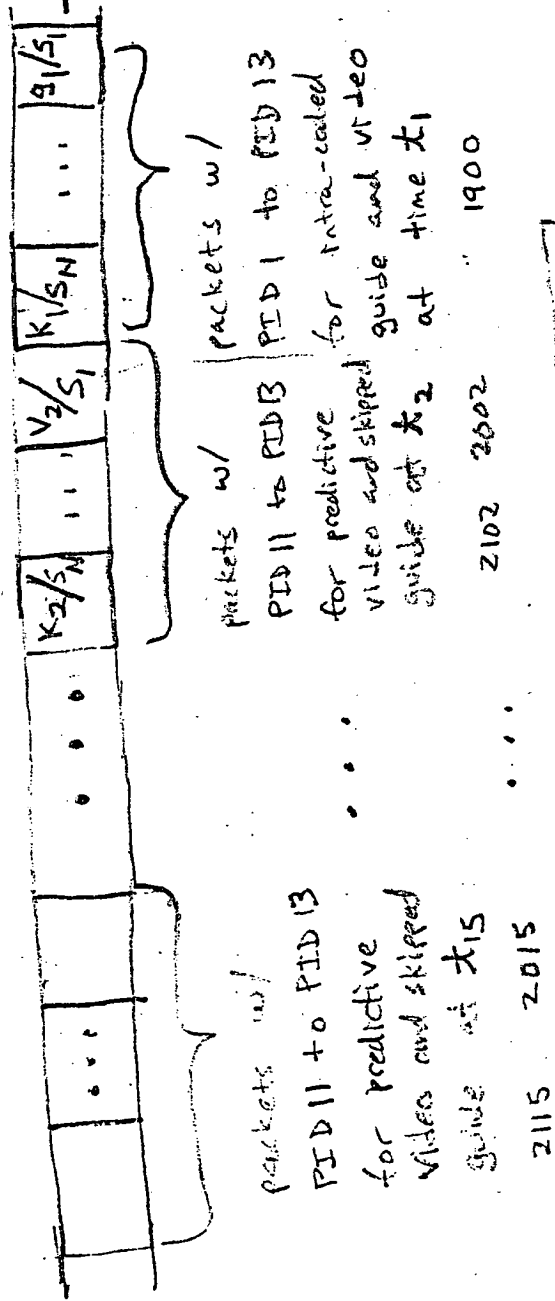 K2/SN ... V2/S1 K1/SN ... g1/S1
packets w/
PID 11 to PID 13
for predictive
video and skipped
guide at t15
2115 2015
packets w/
PID 11 to PID 13
for predictive
video and skipped
guide at t2
2102 2002
packets w/
PID 1 to PID 13
for intra-coded
guide and video
at time t1
1900